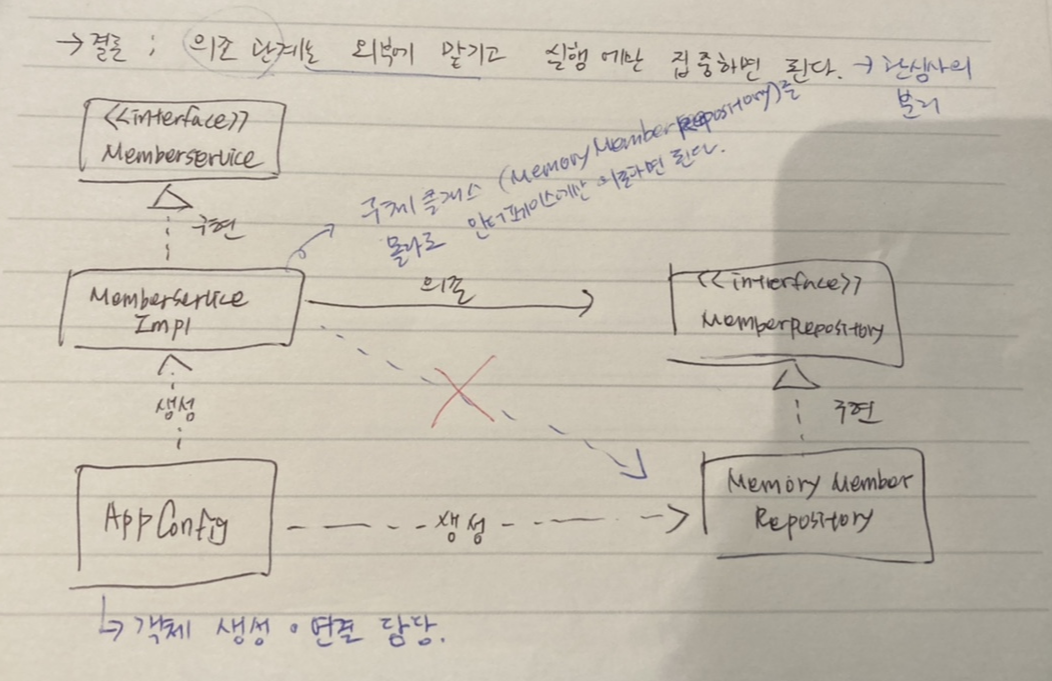 → 결론 ; 의존 관계는 외부에 맡기고 실행에만 집중하면 된다. → 관심사의
분리
<<interface>>
Memberservice
구현
구체 클래스 (MemoryMemberRepository)를
몰라도 인터페이스에만 의존하면 된다.
Memberservice
Impl
의존
<<interface>>
MemberRepository
생성
구현
AppConfig
생성
Memory Member
Repository
↳ 객체 생성 • 연결 담당.